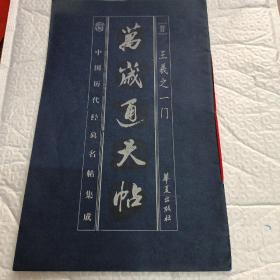 [晋]
王羲之一门
萬歲通天帖
中国历代经典名帖集成
華夏出版社